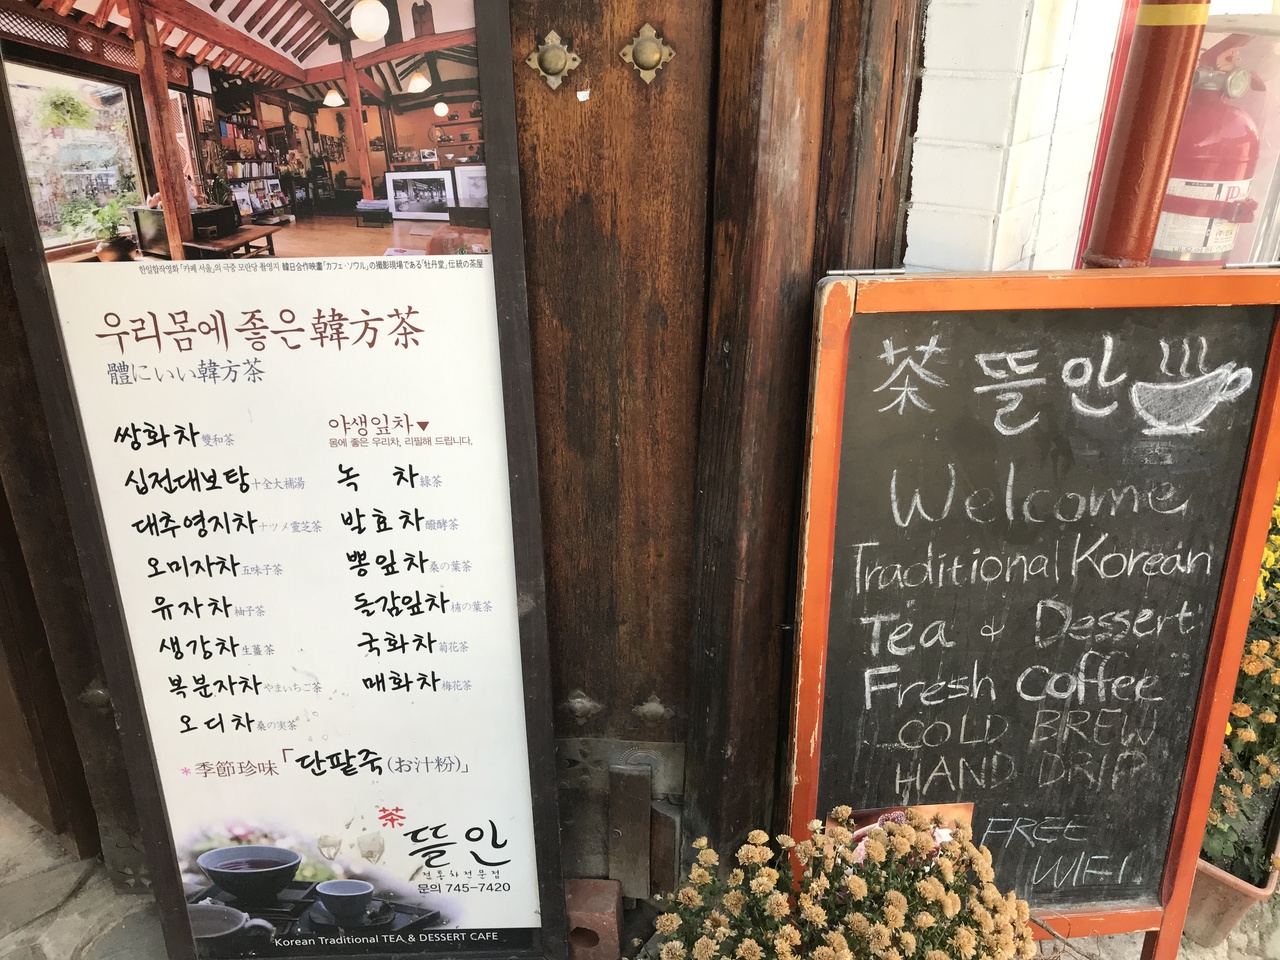 한일합작영화「카페 서울」의 극중 모란당 촬영지 韓日合作映畫「カフェ・ソウル」の撮影現場である「牡丹堂」伝統の茶屋
우리몸에 좋은 韓方茶
體にいい韓方茶
쌍화차 雙和茶
십전대보탕 十全大補湯
대추영지차 ナツメ靈芝茶
오미자차 五味子茶
유자차 柚子茶
생강차 生薑茶
복분자차 やまいちご茶
오디차 桑の実茶
야생잎차▼
몸에 좋은 우리차, 리필해 드립니다.
녹 차 綠茶
발효차 醱酵茶
뽕잎차 桑の葉茶
돌감잎차 の葉茶
국화차 菊花茶
매화차 梅花茶
*季節珍味「단팥죽(お汁粉)」
茶 뜰안
전통차전문점
문의 745-7420
Korean Traditional TEA & DESSERT CAFE
茶 뜰안
Welcome
Traditional Korean
Tea & Dessert
Fresh Coffee
COLD BREW
HAND DRIP
FREE
WIFI